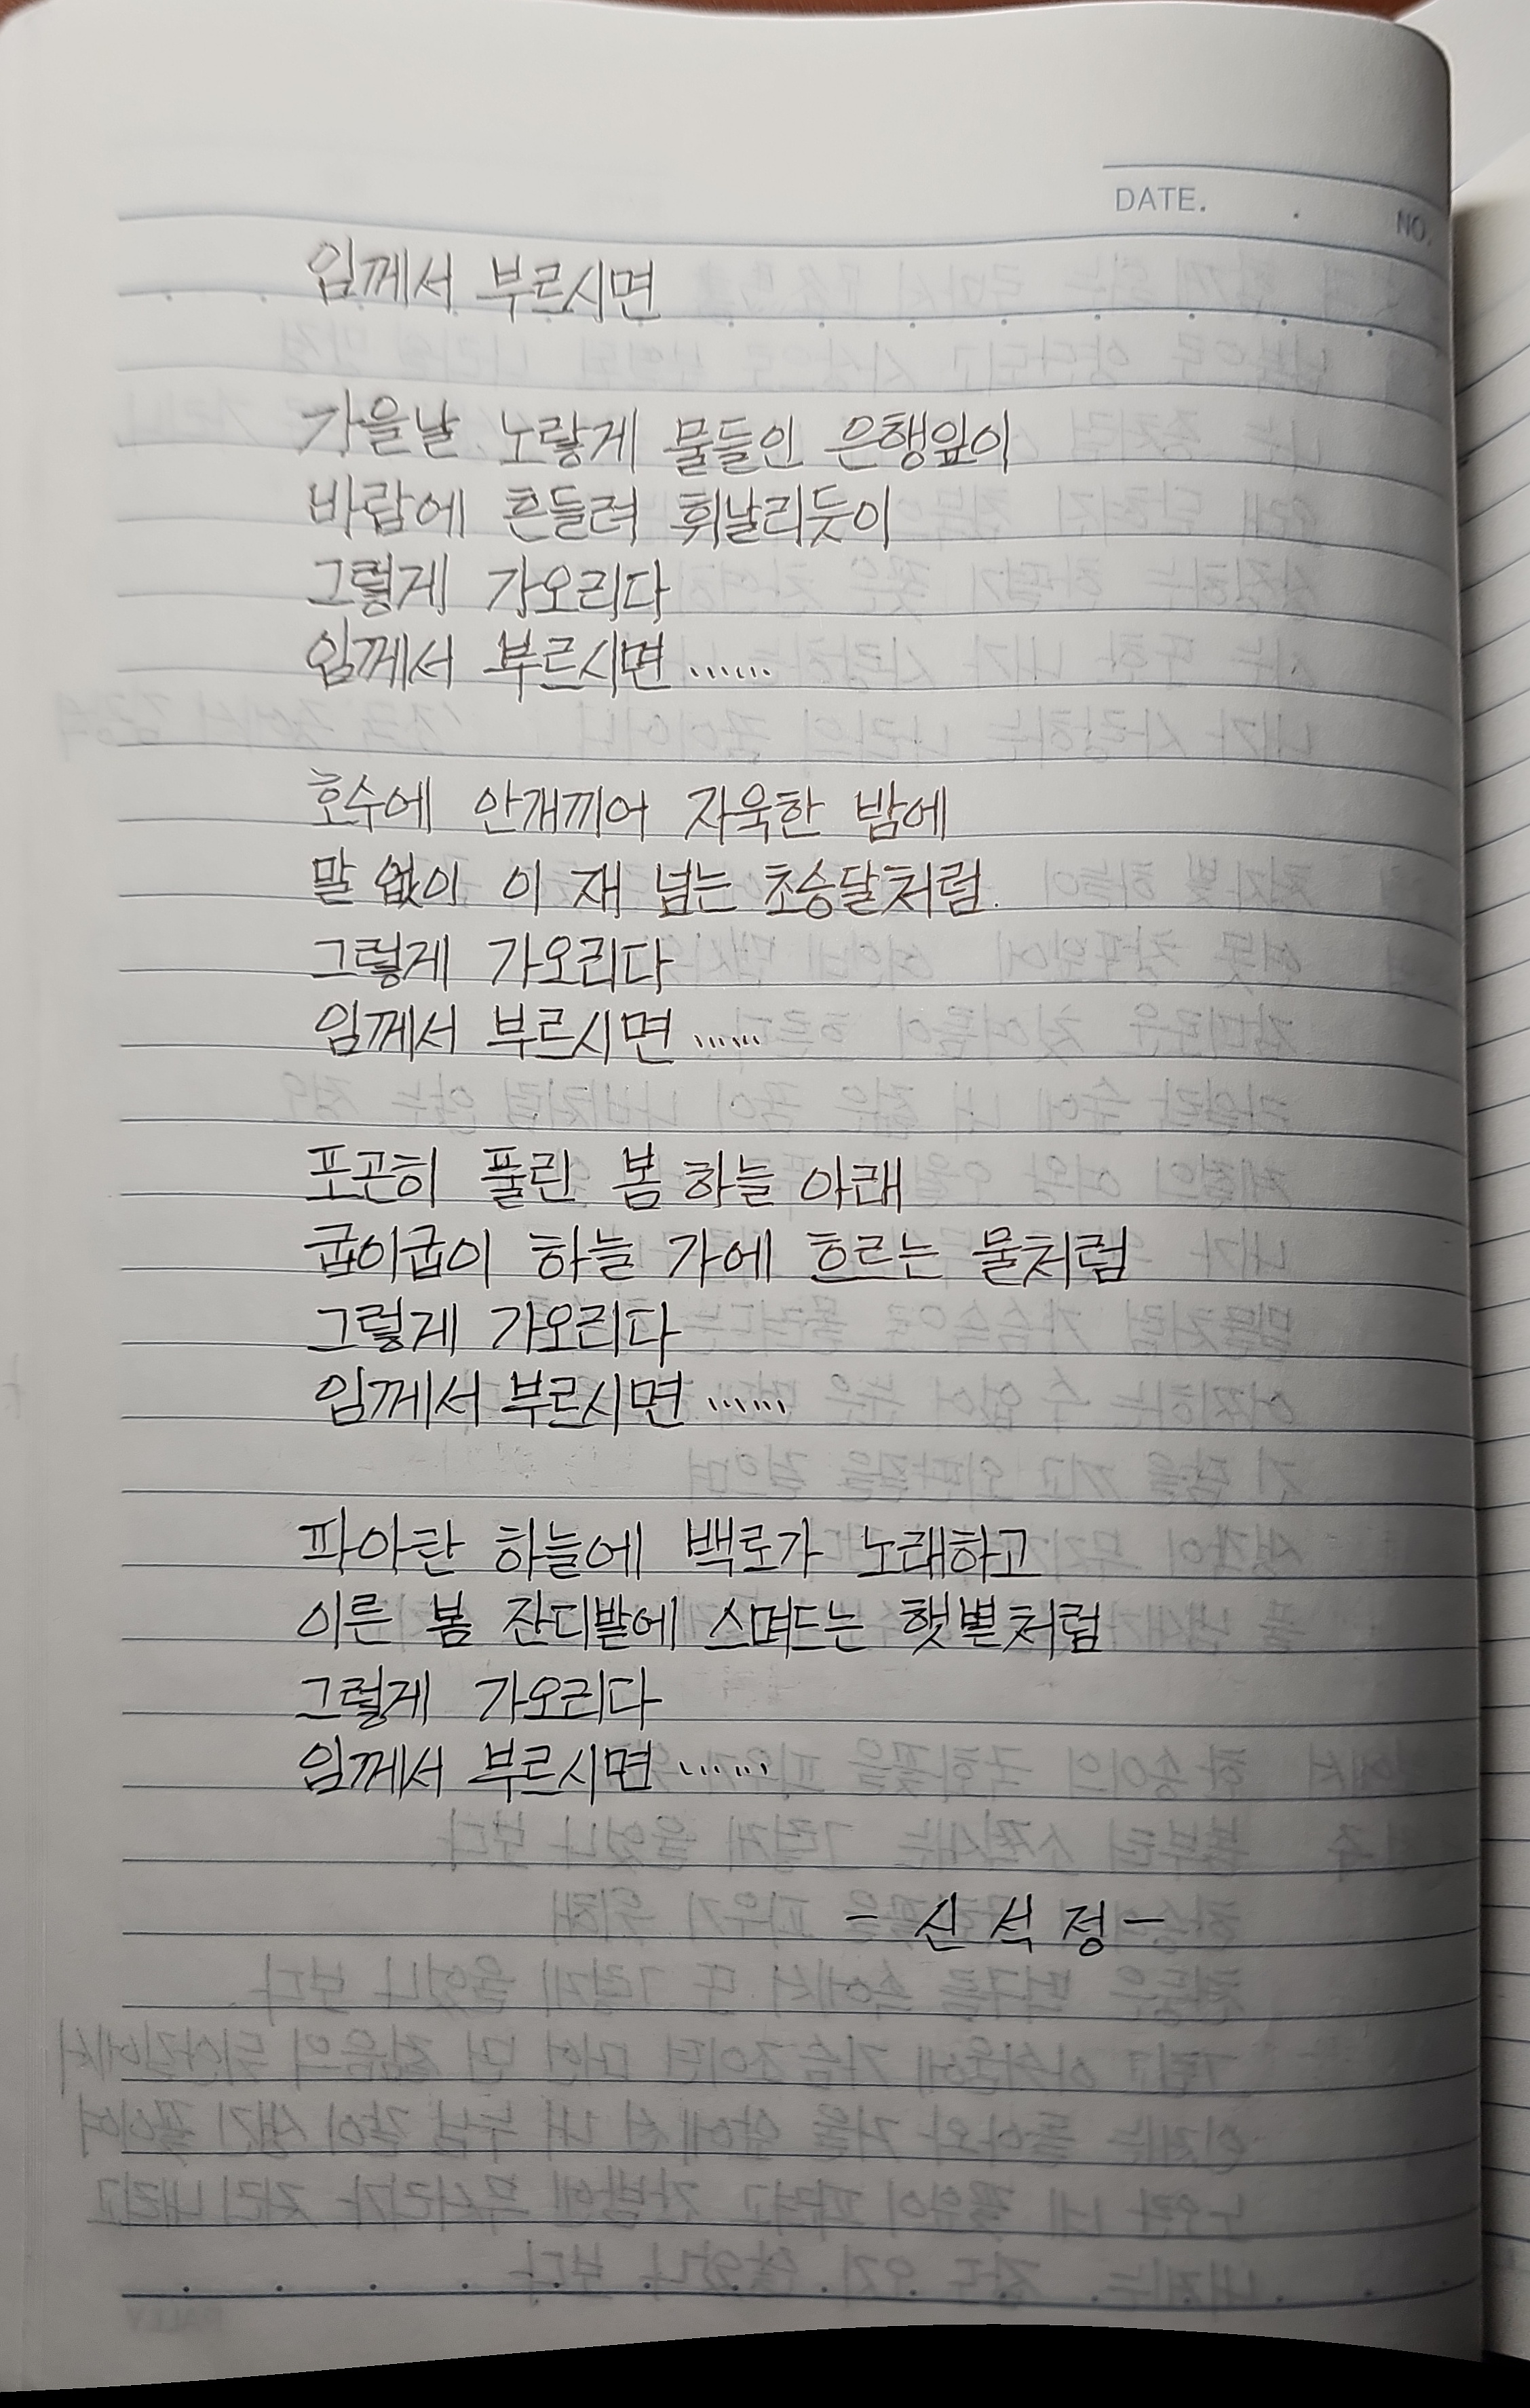 DATE. . NO.
임께서 부르시면
가을날 노랗게 물들인 은행잎이
바람에 흔들려 휘날리듯이
그렇게 가오리다
임께서 부르시면 ......
호수에 안개끼어 자욱한 밤에
말 없이 이 재 넘는 초승달처럼.
그렇게 가오리다
임께서 부르시면 ......
포곤히 풀린 봄 하늘 아래
굽이굽이 하늘 가에 흐르는 물처럼
그렇게 가오리다
임께서 부르시면 ......
파아란 하늘에 백로가 노래하고
이른 봄 잔디밭에 스며드는 햇볕처럼
그렇게 가오리다
임께서 부르시면 ......
- 신 석 정 -